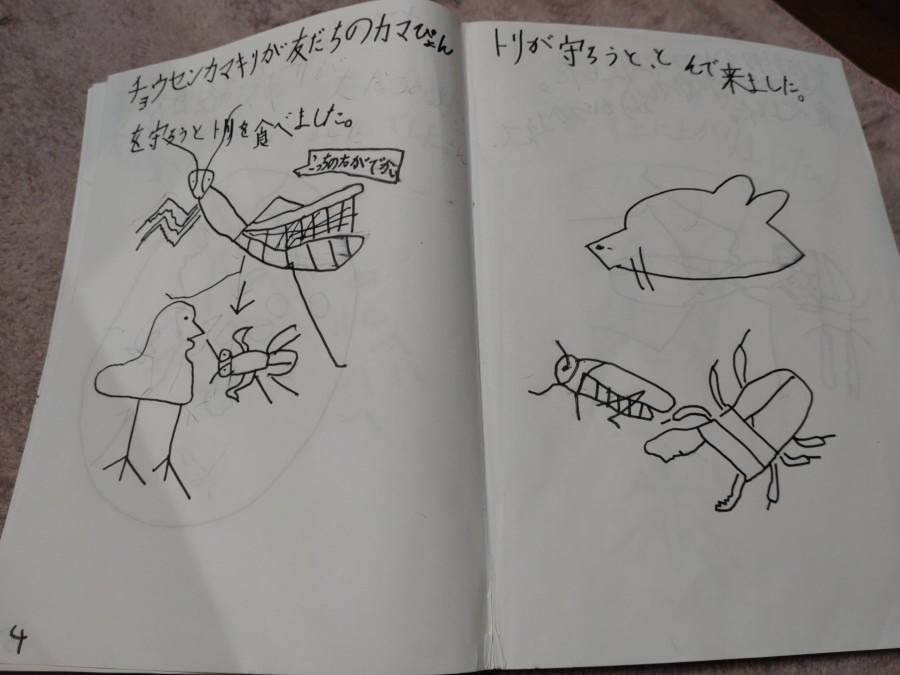 チョウセンカマキリが友だちのカマぴょん
を守ろうとトリを食べました。
こっちの方がでかい
4
トリが守ろうと、とんで来ました。